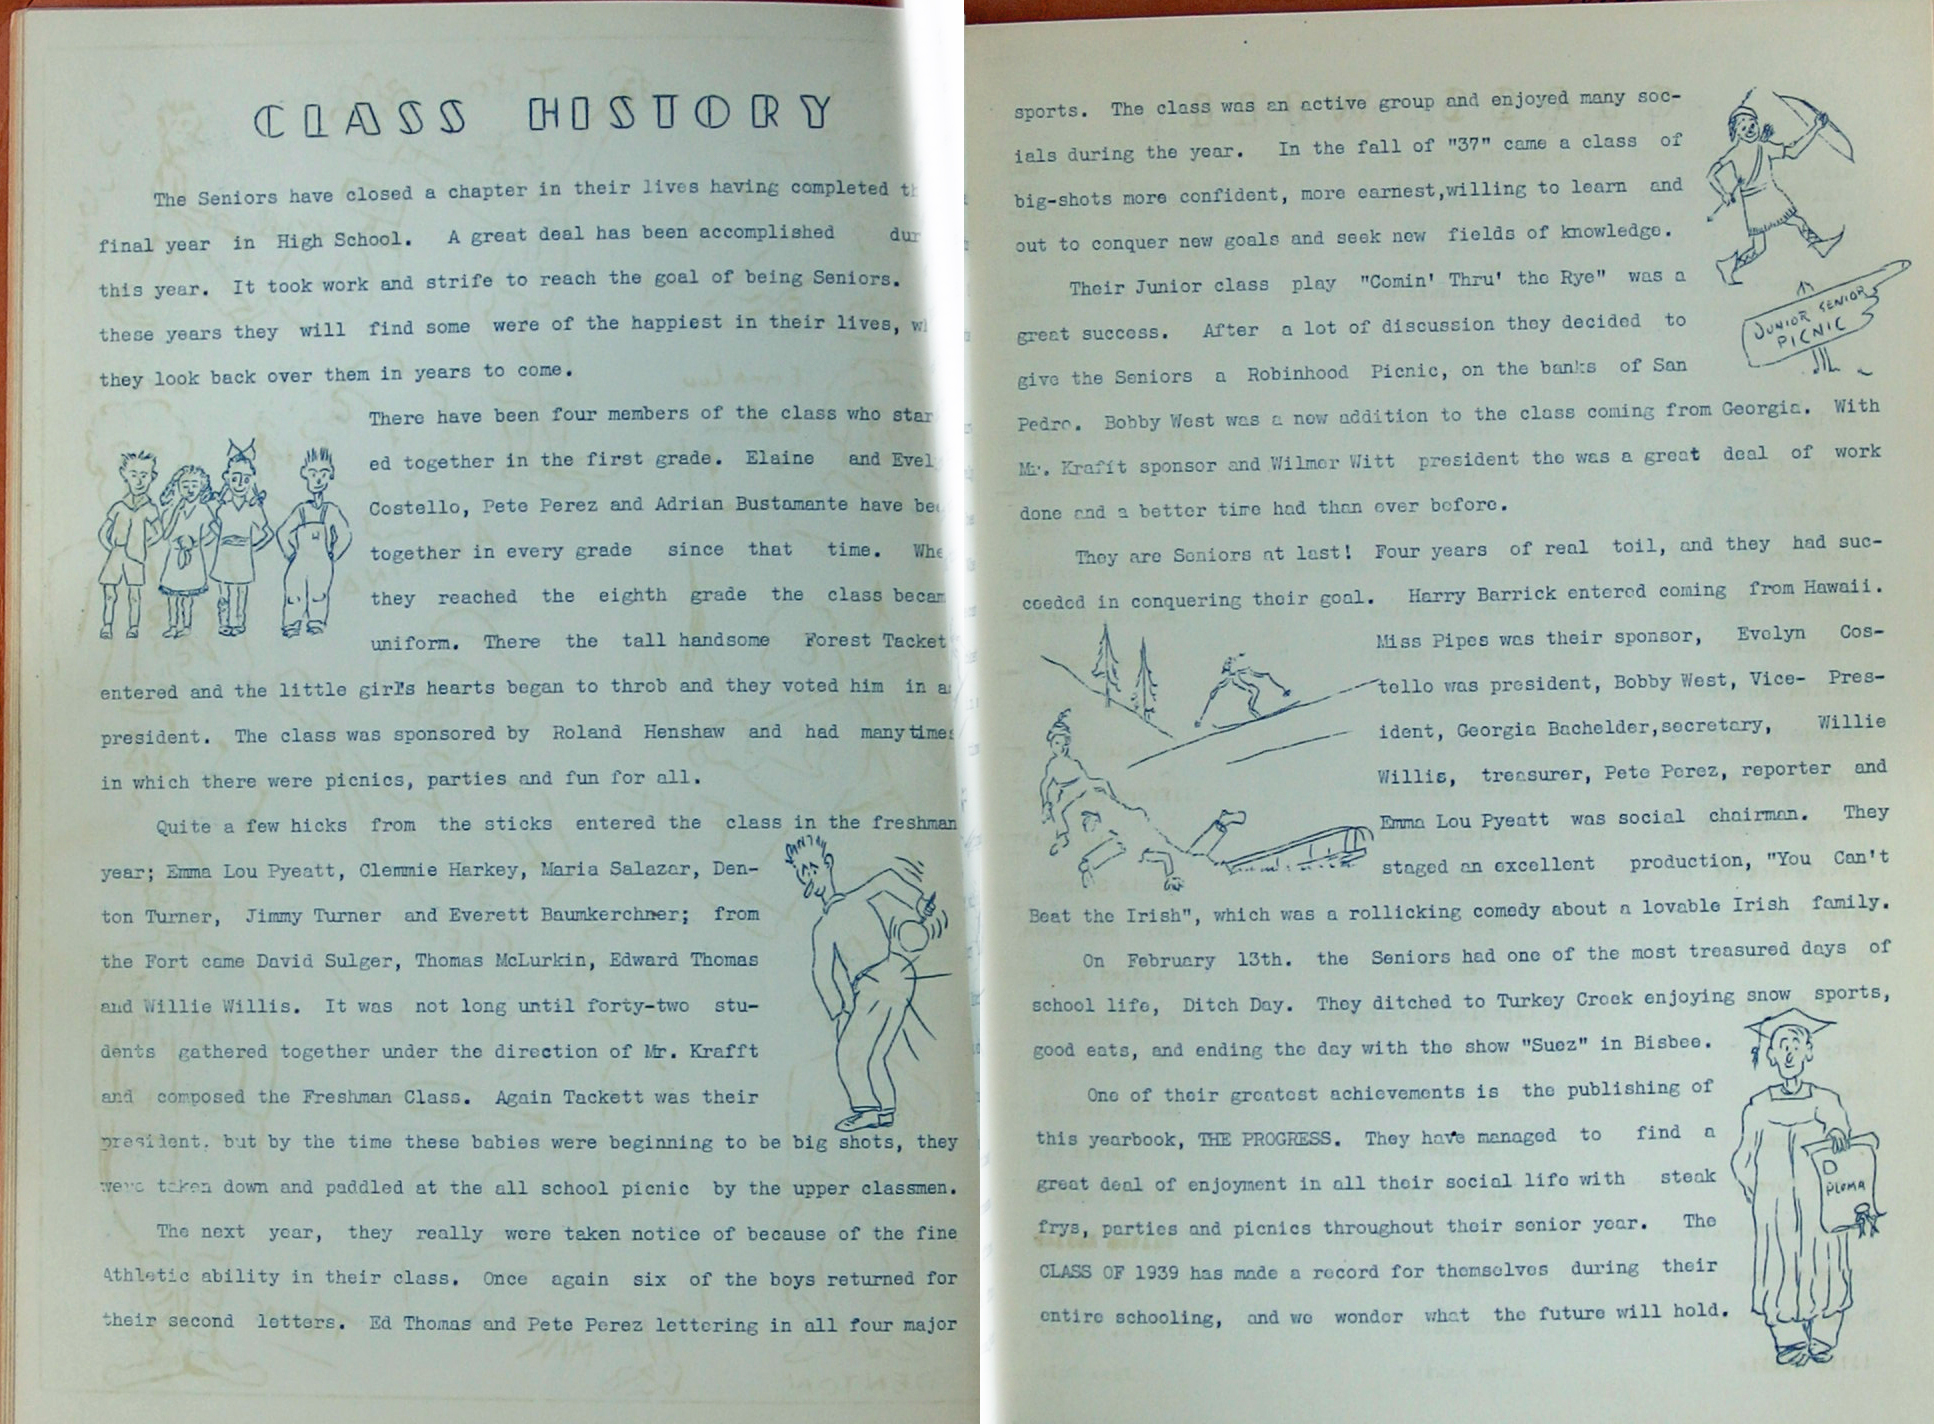 CLASS HISTORY
The Seniors have closed a chapter in their lives having completed
final year in High School. A great deal has been accomplished
this year. It took work and strife to reach the goal of being Seniors.
these years they will find some were of the happiest in their lives,
they look back over them in years to come.
There have been four members of the class who star
ed together in the first grade. Elaine and Evel
Costello, Pete Perez and Adrian Bustamante have
together in every grade since that time.
they reached the eighth grade the class becam
uniform. There the tall handsome Forest Tacket
entered and the little girl's hearts began to throb and they voted him in
president. The class was sponsored by Roland Henshaw and had many times
in which there were picnics, parties and fun for all.
Quite a few hicks from the sticks entered the class in the freshman
year; Emma Lou Pyeatt, Clemmie Harkey, Maria Salazar, Den-
ton Turner, Jimmy Turner and Everett Baumkerchner; from
the Fort came David Sulger, Thomas McLurkin, Edward Thomas
and Willie Willis. It was not long until forty-two stu-
dents gathered together under the direction of Mr. Krafft
and composed the Freshman Class. Again Tackett was their
president. but by the time these babies were beginning to be big shots, they
were taken down and paddled at the all school picnic by the upper classmen.
The next year, they really were taken notice of because of the fine
Athletic ability in their class. Once again six of the boys returned for
their second letters. Ed Thomas and Pete Perez lettering in all four major
sports. The class was an active group and enjoyed many soc-
ials during the year. In the fall of "37" came a class of
big-shots more confident, more earnest,willing to learn and
out to conquer new goals and seek new fields of knowledge.
Their Junior class play "Comin' Thru' the Rye" was a
great success. After a lot of discussion they decided to
give the Seniors a Robinhood Picnic, on the banks of San
Pedro. Bobby West was a new addition to the class coming from Georgia. With
Mr. Krafft sponsor and Wilmer Witt president the was a great deal of work
done and a better time had than ever before.
JUNIOR SENIOR
PICNIC
They are Seniors at last! Four years of real toil, and they had suc-
ceeded in conquering their goal. Harry Barrick entered coming from Hawaii.
Miss Pipes was their sponsor, Evelyn Cos-
tello was president, Bobby West, Vice- Pres-
ident, Georgia Bachelder,secretary, Willie
Willis, treasurer, Pete Perez, reporter and
Emma Lou Pyeatt was social chairman. They
staged an excellent production, "You Can't
Beat the Irish", which was a rollicking comedy about a lovable Irish family.
On February 13th. the Seniors had one of the most treasured days of
school life, Ditch Day. They ditched to Turkey Creek enjoying snow sports,
good eats, and ending the day with the show "Suez" in Bisbee.
One of their greatest achievements is the publishing of
this yearbook, THE PROGRESS. They have managed to find a
great deal of enjoyment in all their social life with steak
frys, parties and picnics throughout their senior year. The
CLASS OF 1939 has made a record for themselves during their
entire schooling, and we wonder what the future will hold.
D
PLOMA